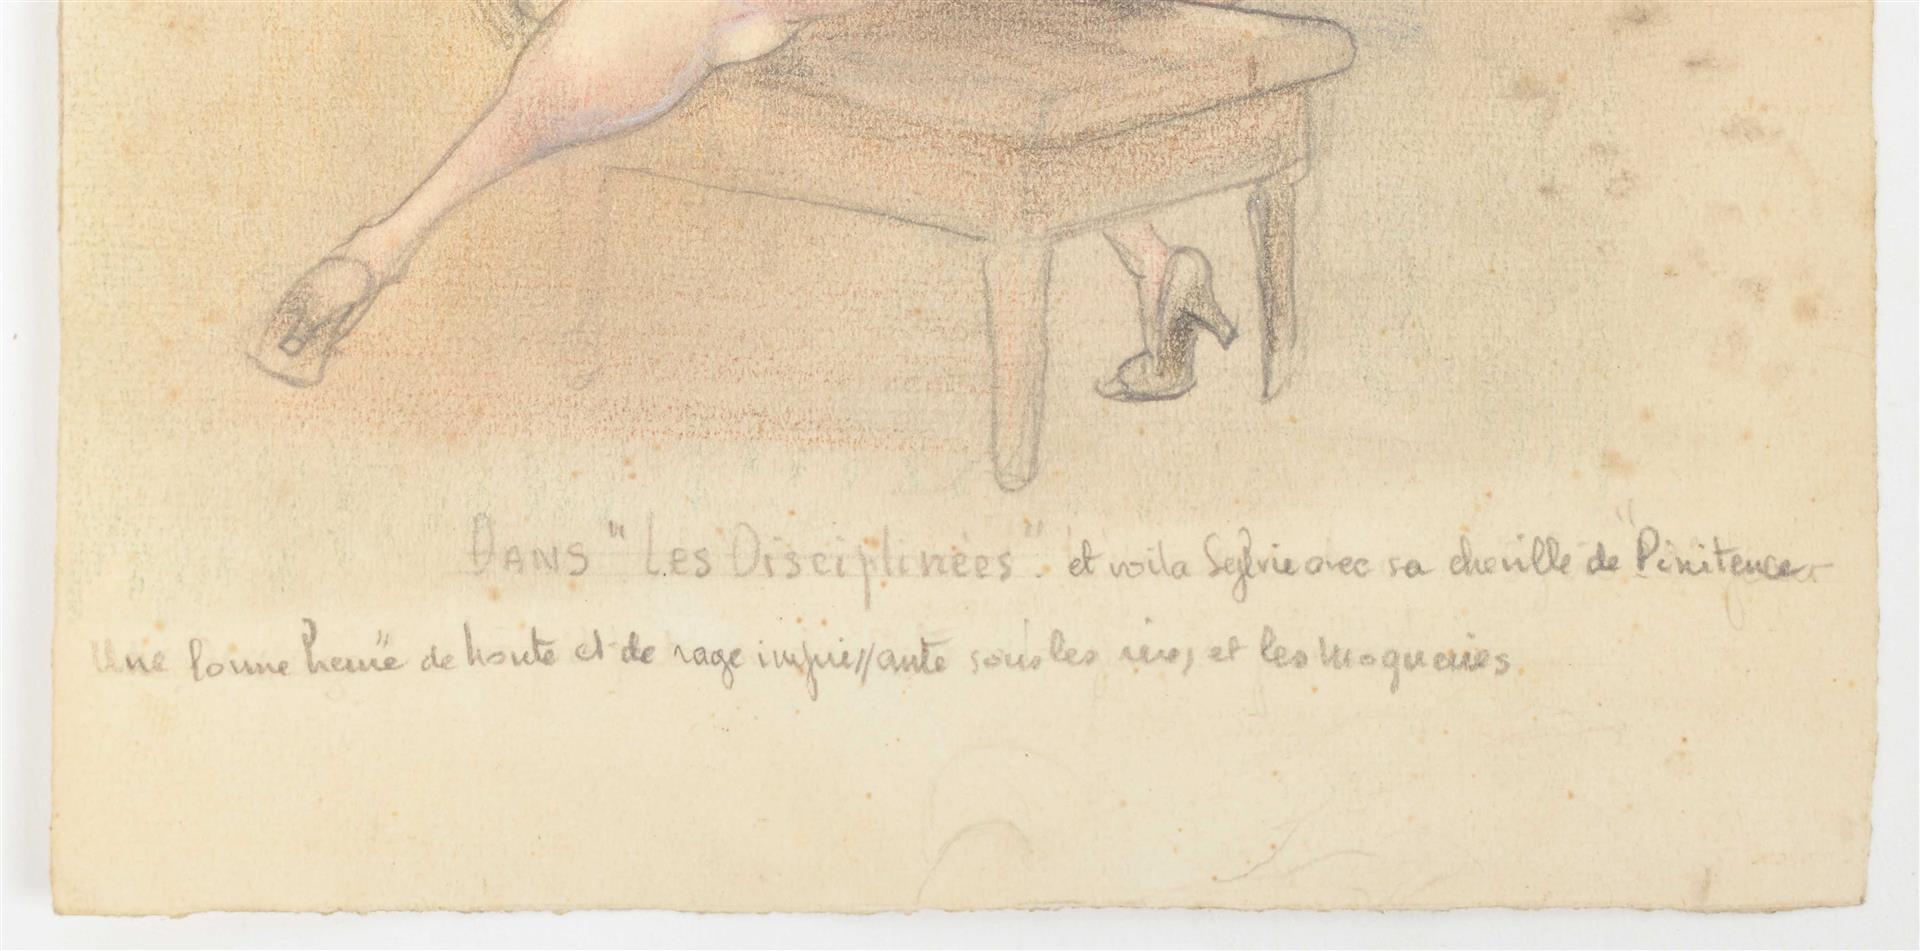 DANS "Les Disciplinées". et voila Sylvie avec sa cheville de "Pénitence
Une bonne heure de honte et de rage impuissante sous les rires et les moqueries